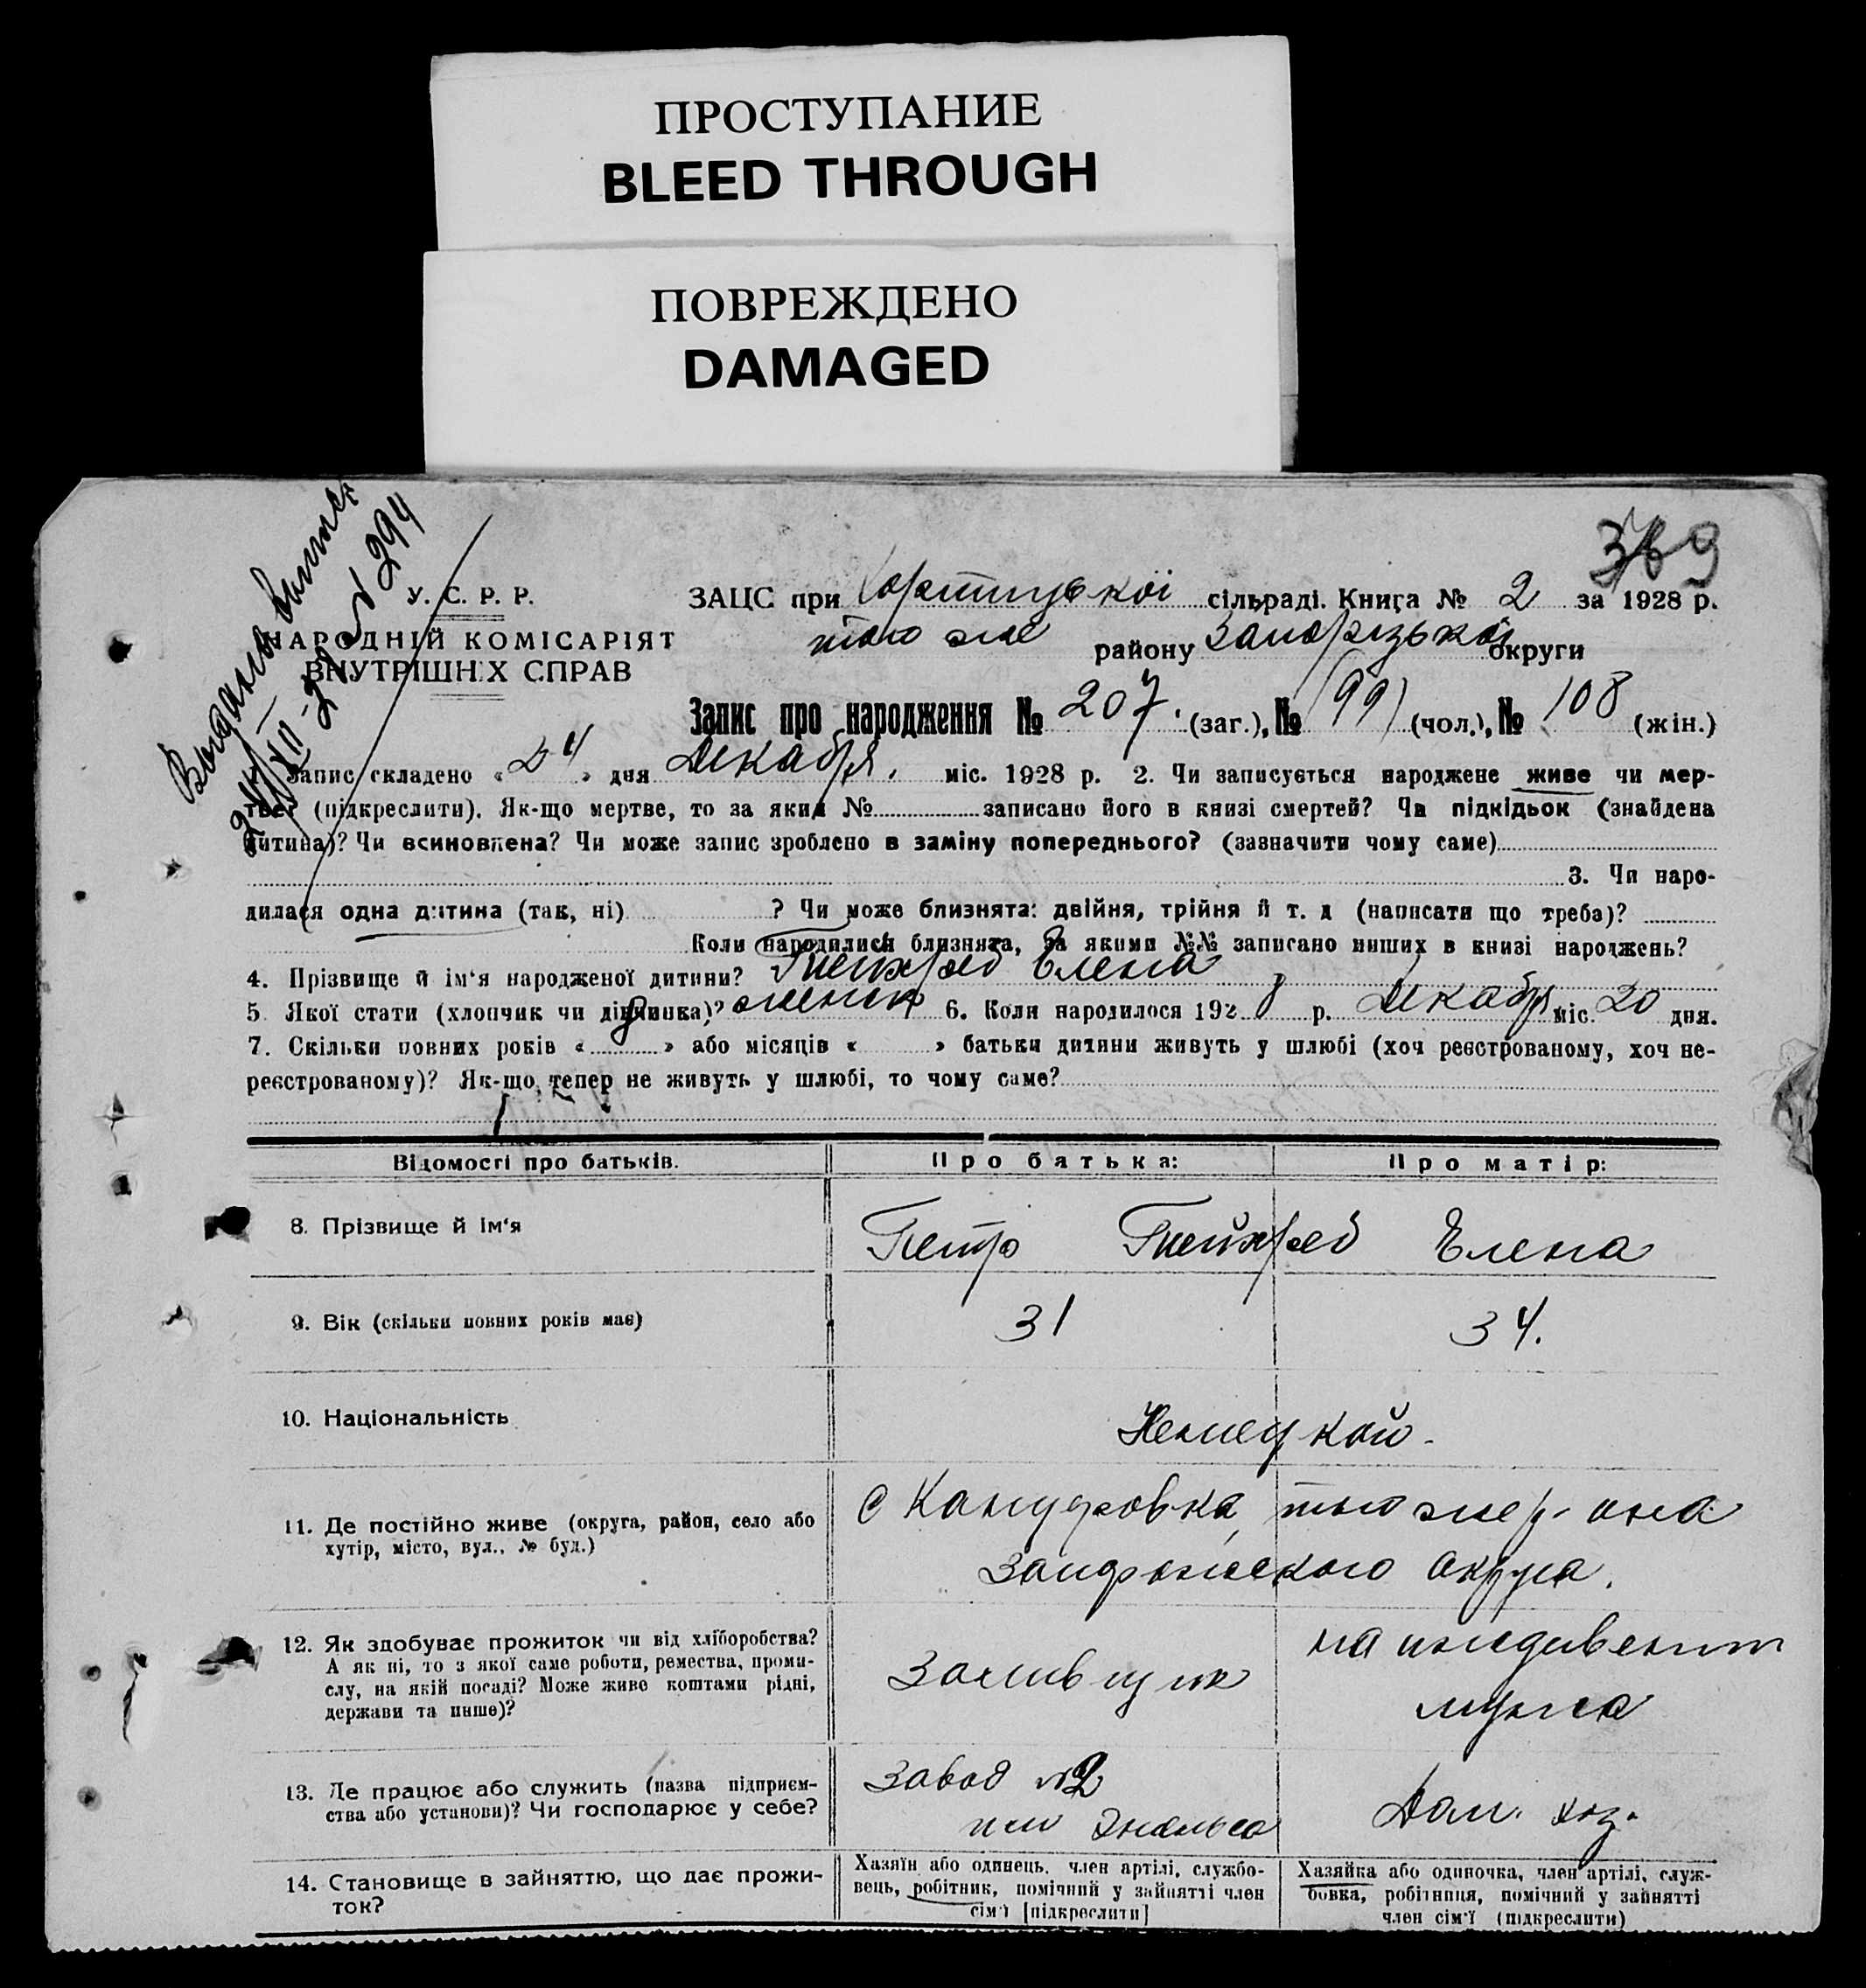 ПРОСТУПАНИЕ
BLEED THROUGH
ПОВРЕЖДЕНО
DAMAGED
369
Выдана выпись
24/XII-28 №294
У. С. Р. Р.
НАРОДНІЙ КОМІСАРІЯТ
ВНУТРІШНІХ СПРАВ
ЗАЦС при Хортицької сільраді. Книга № 2 за 1928 р.
того же району Запорізької округи
Запис про народження № 207 (заг.), № 99 (чол.), № 108 (жін.)
1. Запис складено «24» дня Декабря міс. 1928 р. 2. Чи записується народжене живе чи мер-
тве? (підкреслити). Як-що мертве, то за яким № записано його в книзі смертей? Чи підкідьок (знайдена
дитина)? Чи всиновлена? Чи може запис зроблено в заміну попереднього? (зазначити чому саме)
3. Чи наро-
дилася одна дитина (так, ні) ? Чи може близнята: двійня, трійня й т. д (написати що треба)?
Коли народилися близнята, за якими №№ записано инших в книзі народжень?
4. Прізвище й ім'я народженої дитини? Елена
5. Якої стати (хлопчик чи дівчинка)? женск 6. Коли народилося 1928 р. Декабря міс. 20 дня.
7. Скільки повних років « » або місяців « » батьки дитини живуть у шлюбі (хоч реєстрованому, хоч не-
реєстрованому)? Як-що тепер не живуть у шлюбі, то чому саме?
Відомості про батьків. Про батька: Про матір:
8. Прізвище й ім'я Петр Елена
9. Вік (скільки повних років має) 31 34.
10. Національність Немецкой.
11. Де постійно живе (округа, район, село або
хутір, місто, вул., № буд.)
с Канцеровка, того же р-она
Запорожского Округа.
12. Як здобуває прожиток чи від хліборобства?
А як ні, то з якої саме роботи, ремества, проми-
слу, на якій посаді? Може живе коштами рідні,
держави та инше)?
Заливщик
на иждивении
мужа
13. Де працює або служить (назва підприєм-
ства або установи)? Чи господарює у себе?
Завод №2
им Энгельса
Дом. хоз.
14. Становище в зайняттю, що дає прожи-
ток?
Хазяїн або одинець, член артілі, службо-
вець, робітник, помічний у зайнятті член
сім'ї [підкреслити]
Хазяйка або одиночка, член артілі, служ-
бовка, робітниця, помічний у зайнятті
член сім'ї (підкреслити)